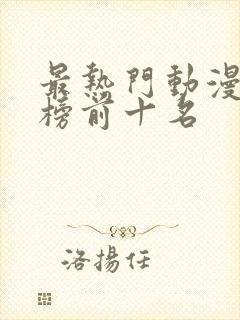 最熱門動漫
榜前十名
洛揚任